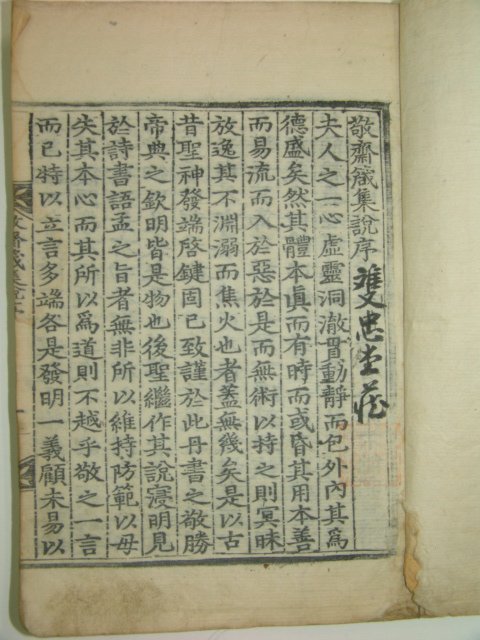 敬齋箴集說序 雙忠堂藏
夫人之一心虛靈洞澈貫動靜而包外內其爲
德盛矣然其體本眞而有時而或昏其用本善
而易流而入於惡於是而無術以持之則冥昧
放逸其不淵溺而焦火也者蓋無幾矣是以古
昔聖神發端啓鍵固已致謹於此丹書之敬勝
帝典之欽明皆是物也後聖繼作其說寖明見
於詩書語孟之旨者無非所以維持防範以毋
失其本心而其所以爲道則不越乎敬之一言
而已特以立言多端各是發明一義顧未易以